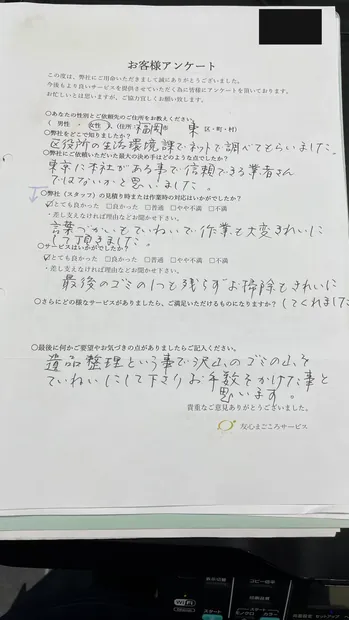 お客様アンケート
この度は、弊社にご用命いただきまして誠にありがとうございました。
今後もより良いサービスを提供させていただく為に皆様にアンケートを頂いております。
お忙しいとは思いますが、ご協力宜しくお願い致します。
○あなたの性別とご依頼先のご住所をお教えください。
( 男性 ・ 女性 ) (住所 : 福岡 市 東 区・町・村)
○弊社をどこで知りましたか?
区役所の生活環境課でネットで調べてもらいました。
○弊社にご依頼いただいた最大の決め手はどのような点でしたか?
東京に本社がある事で信頼できる業者さん
ではないかと思いました。
○弊社 (スタッフ) の見積り時または作業時の対応はいかがでしたか?
☑とても良かった □良かった □普通 □やや不満 □不満
・差し支えなければ理由などお聞かせ下さい。
言葉づかいもていねいで作業も大変きれいに
して頂きました。
○サービスはいかがでしたか?
☑とても良かった □良かった □普通 □やや不満 □不満
・差し支えなければ理由などお聞かせ下さい。
最後のゴミの1つも残らずお掃除もきれいに
してくれました
○さらにどの様なサービスがありましたら、ご満足いただけるものになりますか?
○最後に何かご要望やお気づきの点がありましたらご記入ください。
遺品整理という事で沢山のゴミの山を
ていねいにして下さりお手数をかけた事と
思います。
貴重なご意見ありがとうございました。
友心まごころサービス
コピー倍率
印刷品質
モノクロ
カラー
スタート
Wi-Fi
スタート